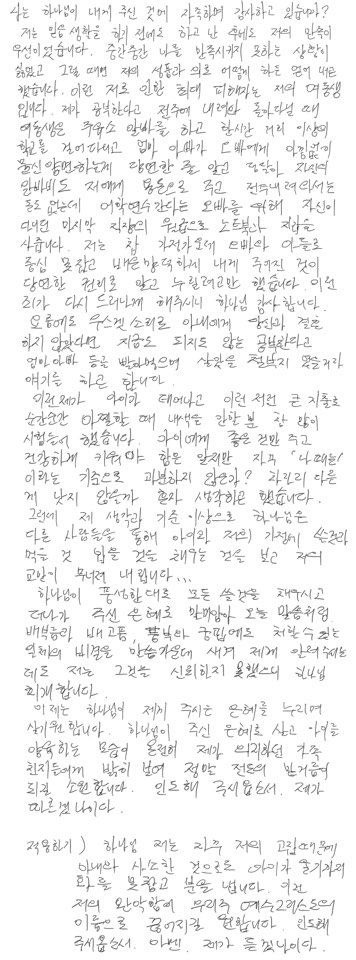 나는 하나님이 내게 주신 것에 자족하며 감사하고 있습니까?
저는 믿음 생활을 하기 전에도 하고 난 후에도 저의 만족이
우선이었습니다. 중간중간 나를 만족시키지 못하는 상황이
싫었고 그럴 때면 저의 성품과 의로 어떻게 하든 얻어 내려
했습니다. 이런 저로 인한 최대 피해자는 저의 여동생
입니다. 제가 공부한다고 전주에 내려와 돌아다닐 때
여동생은 주유소 알바를 하고 한시간 거리 이상의
학교를 걸어다니고 엄마 아빠가 오빠에게 아낌없이
당연한 줄 알고
알바비도 저에게 용돈으로 주고 전주 내려와서는
돈도 없는데 어학연수간다는 오빠를 위해 자신이
다니던 마지막 직장의 월급으로 노트북과
사습니다. 저는 참 가정 가운데 오빠와 아들로
중심 못잡고 내게 주어진 것이
당연한 권리로 알고 누릴려고만 했습니다. 이런
죄가 다시 드러나게 해주시니 하나님 감사합니다.
요즘에도 우스겟 소리로 아내에게 당신과 결혼
하지 않았다면 지금도 되지도 않는 공부한다고
엄마 아빠 등골 빨아먹으며 살았을 철부지 였을거라
얘기를 하곤 합니다.
이런 제가 아이가 태어나고 이런 저런 큰 지출로
순간순간 아찔할 때 내색을 안할 뿐 참 많이
시험들어 했습니다. 아이에게 좋은 것만 주고
건강하게 키워야 함은 알지만 자꾸 '나 때는'
이라는 기준으로 과분하지 않은가? 차라리 다른
게 낫지 않을까 혼자 생각하곤 했습니다.
그런데 제 생각과 기준 이상으로 하나님은
다른 사람들을 통해 아이와 저의 가정에
먹을 것 입을 것을 채우는 것을 보고 저의
교만이 무너져 내립니다...
하나님이 풍성한대로 모든 쓸것을 채우시고
더나가 주신 은혜로 말미암아 오늘 말씀처럼
배부름과 배고픔, 풍부와 궁핍에도 처할 수 있는
일체의 비결을 말씀가운데 새겨 제게 알려주셨는
데도 저는 그것을 신뢰하지 못했으니 하나님
회개합니다.
이제는 하나님이 제게 주시는 은혜를 누리며
살기 원합니다. 하나님이 주신 은혜로 살고 아이를
양육하는 모습이 온전히 제가 의지하던 가족
친지들에게 밝히 보여 정말 전도의 밑거름이
되길 소원합니다. 인도해 주시옵소서. 제가
따르겠나이다.
적용하기) 하나님 저는 자꾸 저의 고집때문에
아내와 사소한 것으로도 아이가 울기까지
화를 못참고 분을 냅니다. 이런
저의 완악함이 우리 주 예수그리스도의
이름으로 끊어지길 원합니다. 인도해
주시옵소서. 아멘. 제가 듣겠나이다.